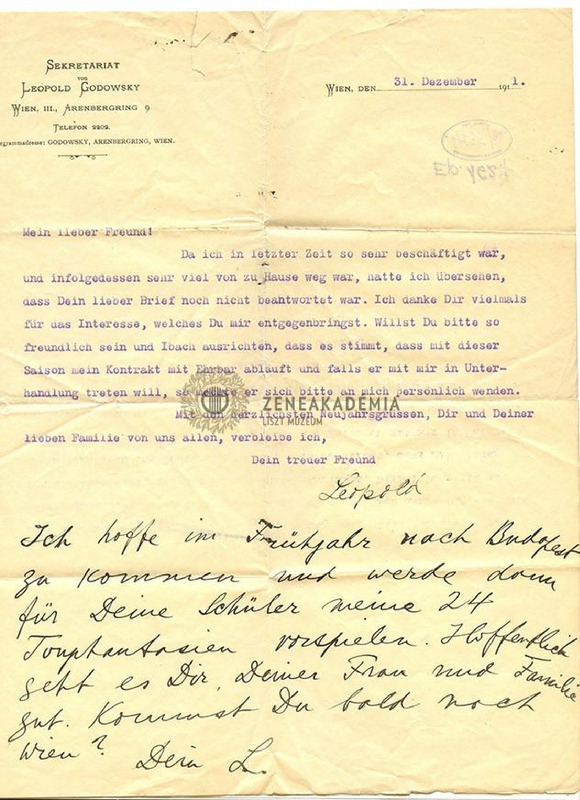 SEKRETARIAT
VON
LEOPOLD GODOWSKY
WIEN, III., ARENBERGRING 9
TELEFON 2202.
egrammadresse: GODOWSKY, ARENBERGRING, WIEN.
WIEN, DEN 31. Dezember 1911.
Mein lieber Freund!
Da ich in letzter Zeit so sehr beschäftigt war,
und infolgedessen sehr viel von zu Hause weg war, hatte ich übersehen,
dass Dein lieber Brief noch nicht beantwortet war. Ich danke Dir vielmals
für das Interesse, welches Du mir entgegenbringst. Willst Du bitte so
freundlich sein und Ibach ausrichten, dass es stimmt, dass mit dieser
Saison mein Kontrakt mit Ehrbar abläuft und falls er mit mir in Unter-
handlung treten will, so er sich bitte an mich persönlich wenden.
ZENEAKADEMIA
LISZT MÚZEUM
Mit den herzlichsten Neujahrsgrüssen, Dir und Deiner
lieben Familie von uns allen, verbleibe ich,
Dein treuer Freund
Leopold
Ich hoffe im Frühjahr nach Budapest
zu kommen und werde dann
für Deine Schüler meine 24
Tonphantasien vorspielen. Hoffentlich
geht es Dir, Deiner Frau und Familie
gut. Kommst Du bald nach
Wien? Dein L.